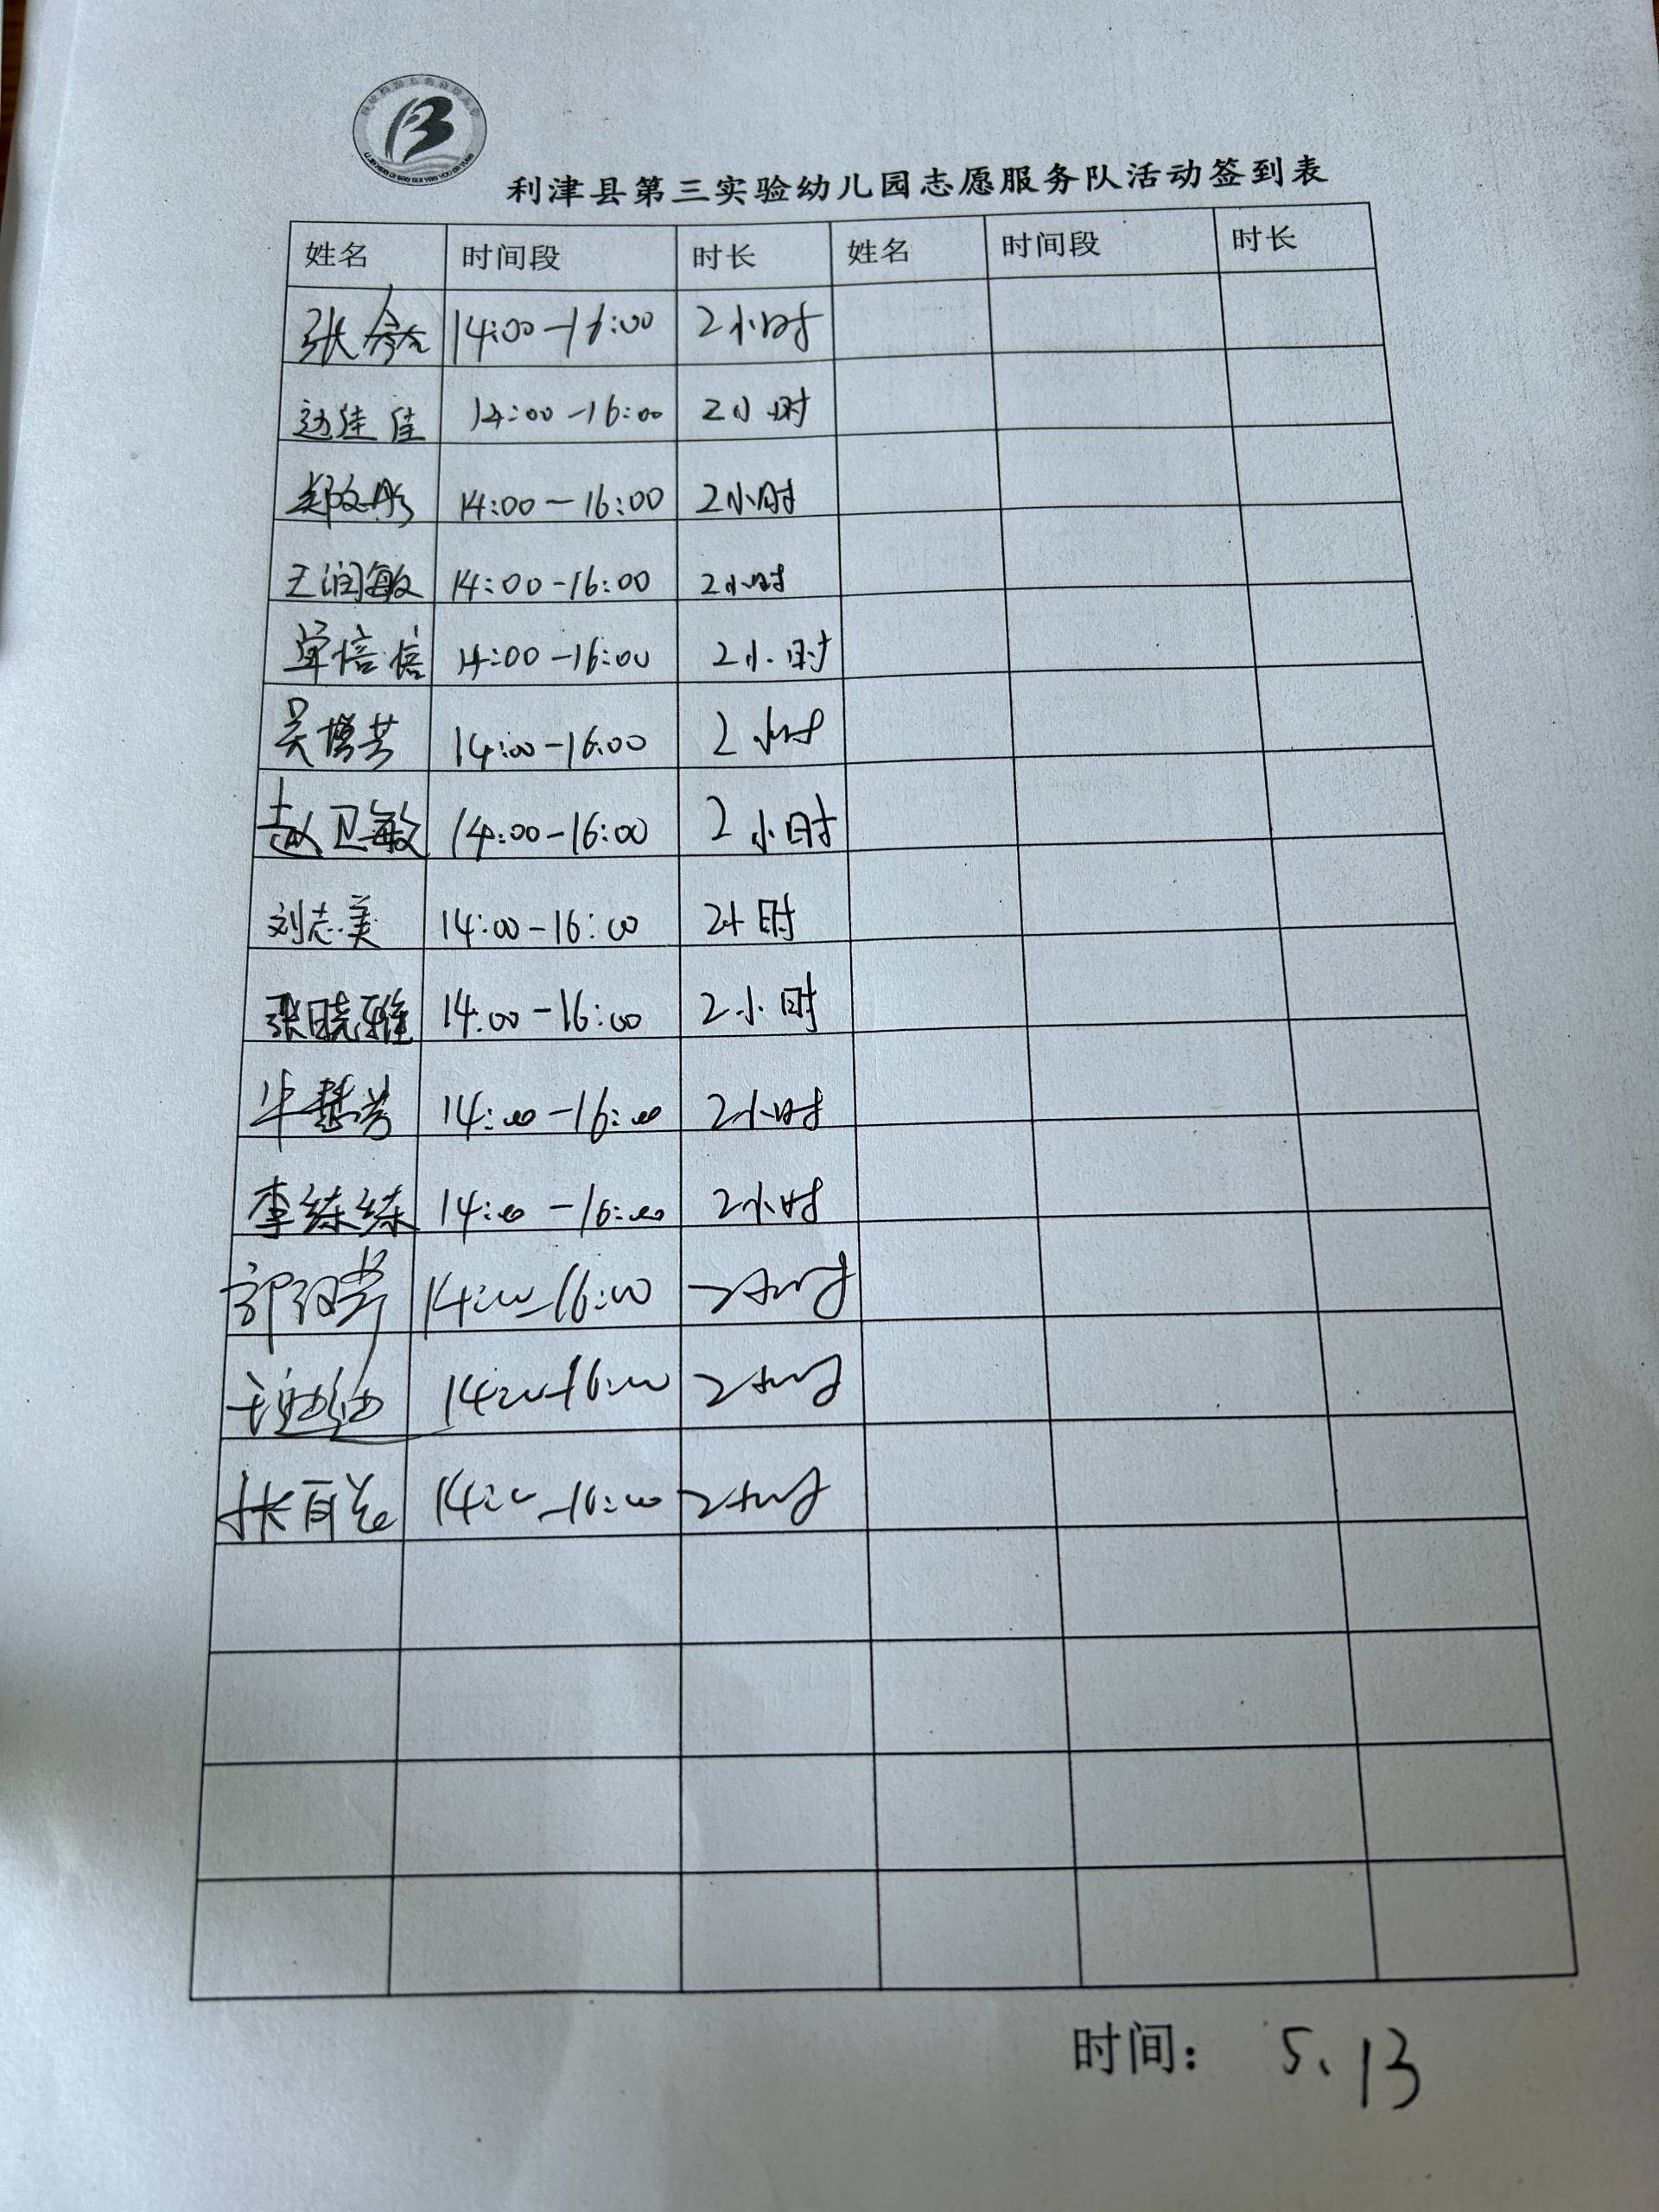 利津县第三实验幼儿园志愿服务队活动签到表
姓名 时间段 时长 姓名 时间段 时长
张 14:00-16:00 2小时
边佳佳 14:00-16:00 2小时
郑文彤 14:00-16:00 2小时
王润敏 14:00-16:00 2小时
单倍倍 14:00-16:00 2小时
吴增芸 14:00-16:00 2小时
赵卫敏 14:00-16:00 2小时
刘志美 14:00-16:00 2小时
张晓雅 14:00-16:00 2小时
牛慧芳 14:00-16:00 2小时
李练练 14:00-16:00 2小时
14:00-16:00 2小时
14:00-16:00 2小时
张 14:00-16:00 2小时
时间: 5.13